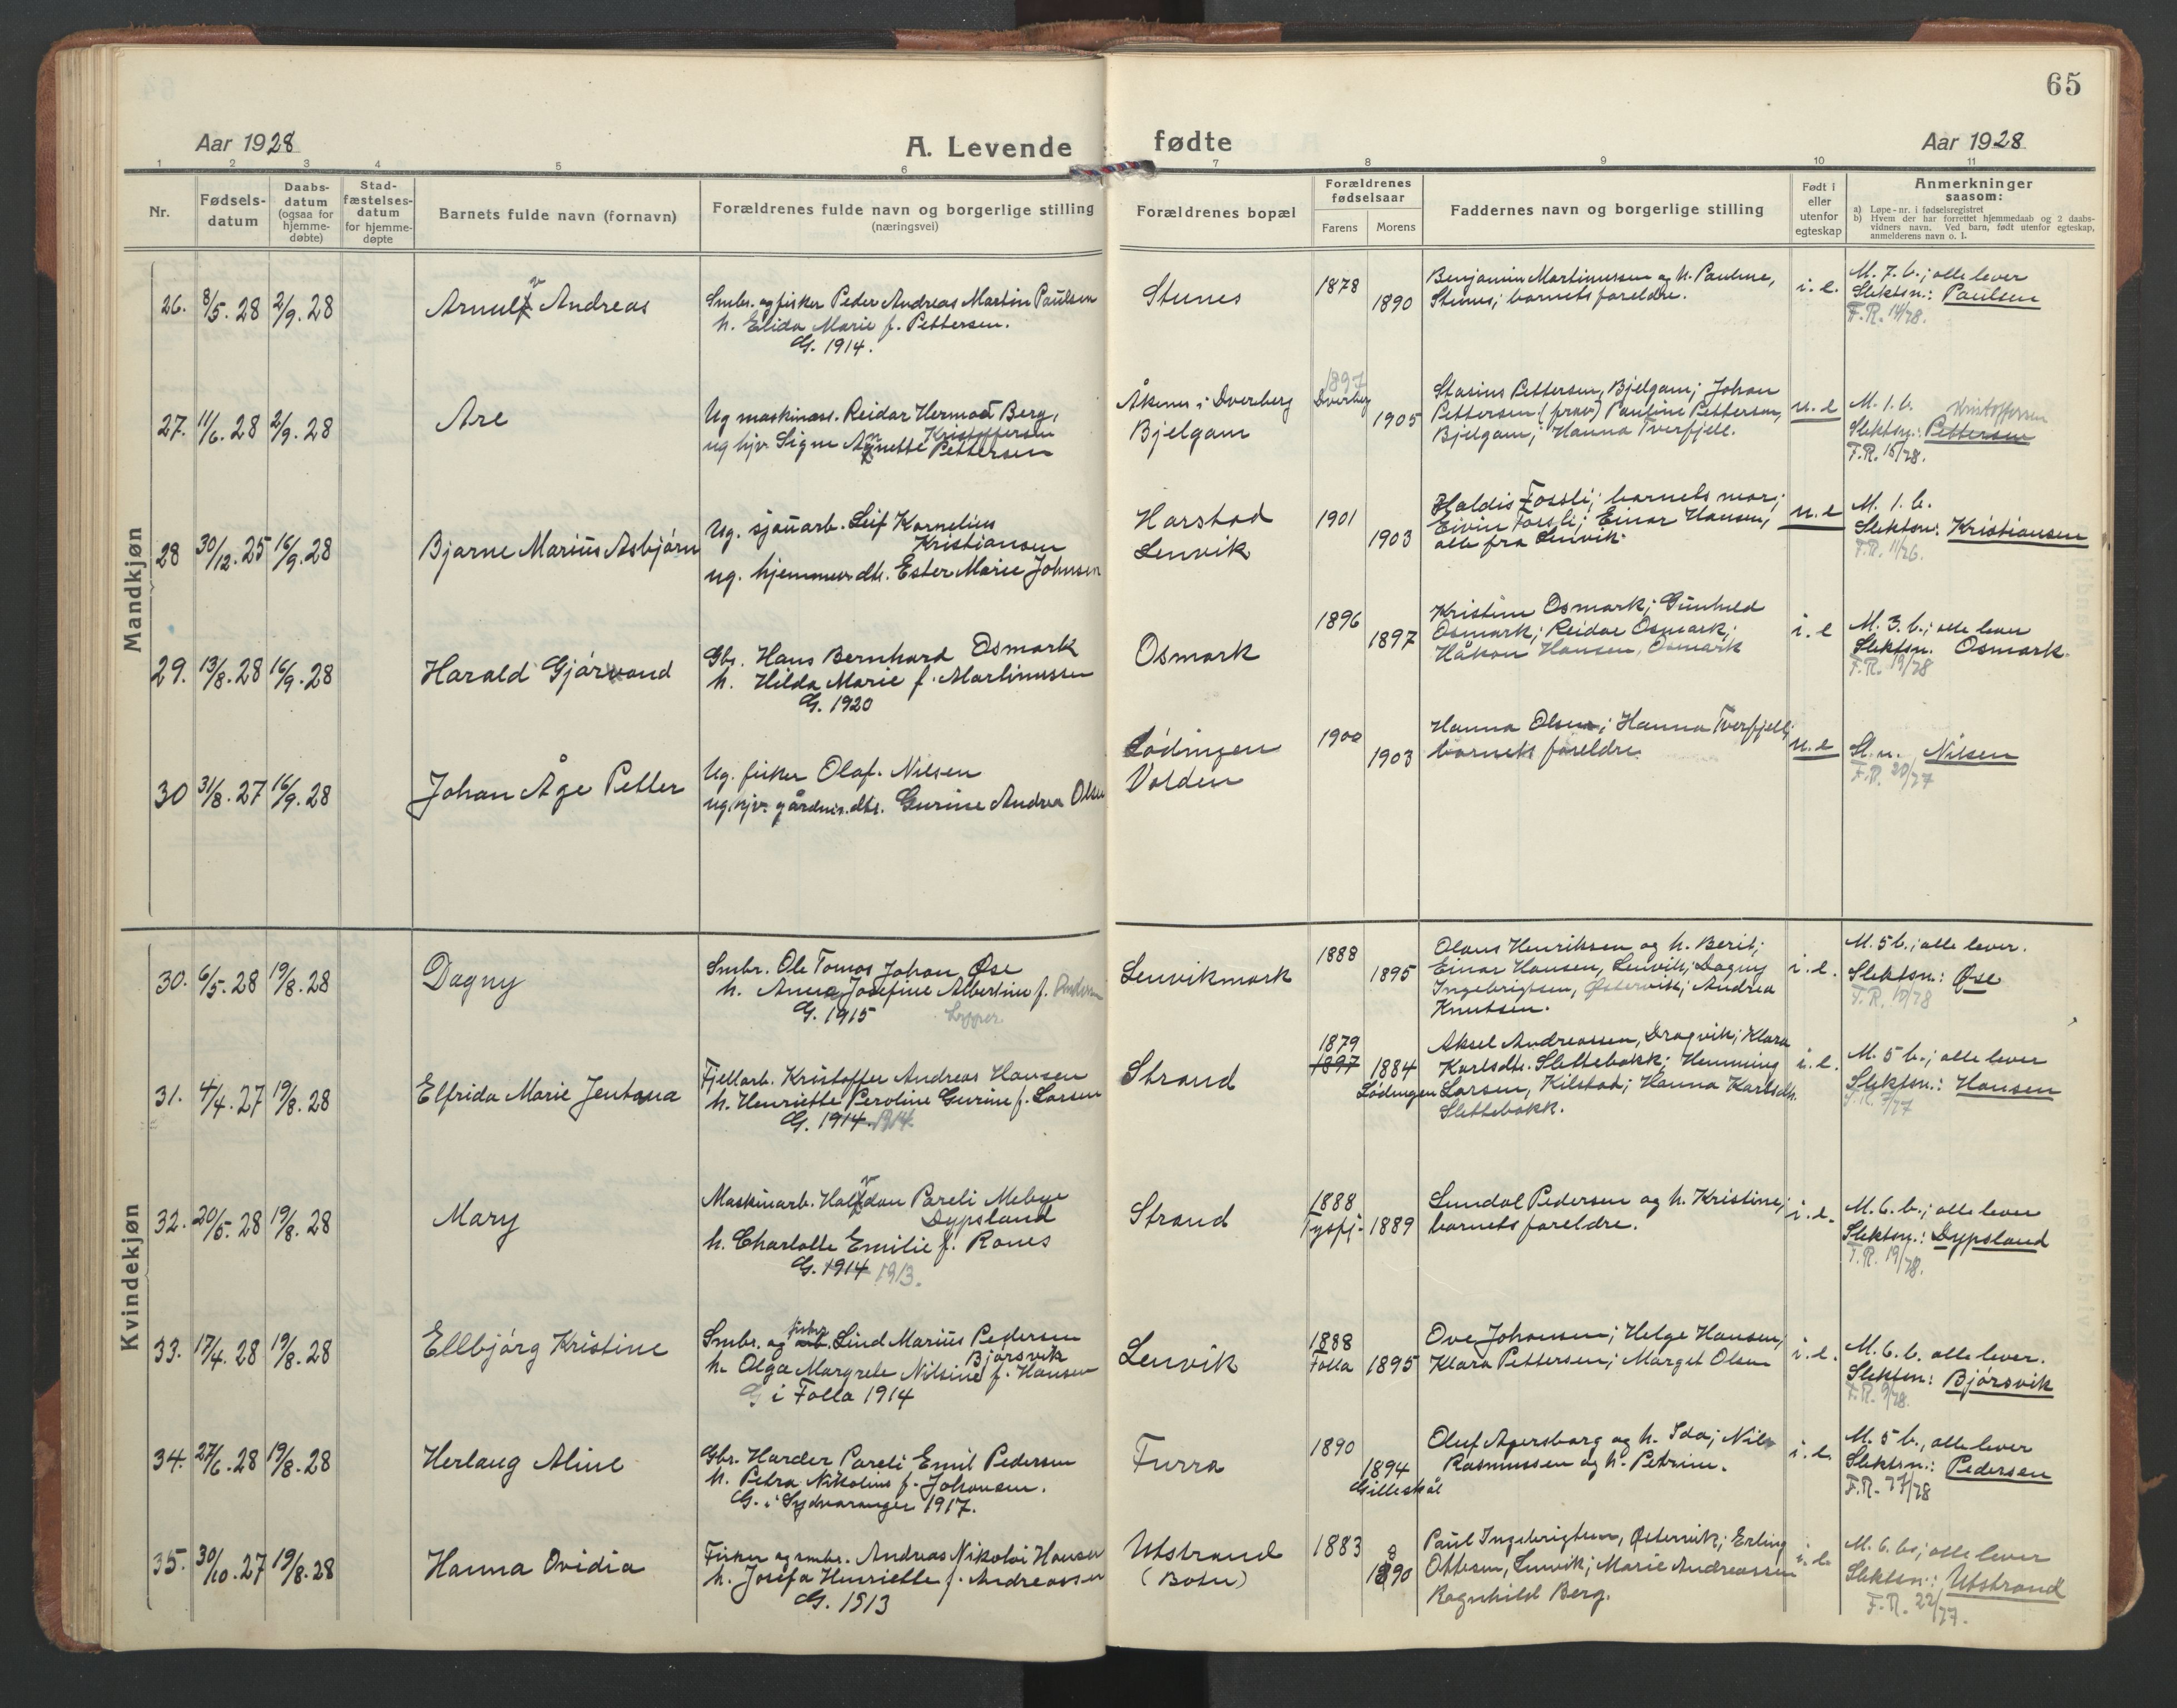 65
Aar 1928
A. Levende fødte
Aar 1928
1 2 3 4 5 6 7 8 9 10 11
Nr.
Fødsels-
datum
Daabs-
datum
(ogsaa for
hjemme-
døbte)
Stad-
fæstelses-
datum
for hjemme-
døpte
Barnets fulde navn (fornavn)
Forældrenes fulde navn og borgerlige stilling
(næringsvei)
Forældrenes bopæl
Forældrenes
fødselsaar
Farens Morens
Faddernes navn og borgerlige stilling
Født i
eller
utenfor
egteskap
Anmerkninger
saasom:
a) Løpe-nr. i fødselsregistret
b) Hvem der har forrettet hjemmedaab og 2 daabs-
vidners navn. Ved barn, født utenfor egteskap,
anmelderens navn o. l.
Mandkjøn
26. 8/5. 28 2/9. 28
Arnulv Andreas
Smbr. og fisker Peder Andreas Martin Paulsen
h. Elida Marie f. Pettersen.
G. 1914.
Stunes
1878
1890
Benjamin Martinussen og h. Pauline,
Stunes; barnets foreldre.
i. e.
M. 7. b.; alle lever
Slektsn.: Paulsen
F.R. 14/28.
27. 11/6. 28 2/9. 28
Are
Ug maskinass. Reidar Hermod Berg,
Kristoffersen
ug hjv. Signe Annette Pettersen
Åknes i Dverberg
Bjelgam
1897
Dverberg
1905
Stasius Pettersen, Bjelgam; Johan
Pettersen (prov) Pauline Pettersen,
Bjelgam; Hanna Tverfjell.
u. e
M. 1. b. Kristoffersen
Slektsn.: Pettersen
F.R. 15/28.
28 30/12. 25 16/9. 28
Bjarne Marius Asbjørn
Ug. sjauarb. Leif Kornelius
Kristiansen
ug. hjemmev. dtr. Ester Marie Johnsen
Harstad
Lenvik
1901
1903
Haldis Fossli; barnets mor;
Eivin Fossli; Einar Hansen,
alle fra Lenvik.
u. e
M. 1. b.
Slektsn: Kristiansen
F.R. 11/26.
29. 13/8. 28 16/9. 28
Harald Gjarvand
Gbr. Hans Bernhard Osmark
h. Hilda Marie f. Martinussen
G. 1920
Osmark
1896
1897
Kristine Osmark; Gunhild
Osmark; Reidar Osmark;
Håkon Hansen, Osmark
i. e
M. 3. b.; alle lever
Slektsn. Osmark.
F.R. 19/28
30 31/8. 27 16/9. 28
Johan Åge Petter
Ug. fisker Olaf. Nilsen
ug. hjv. gårdmr. dtr. Gurine Andrea Olsen
Lødingen
Volden
1900
1903
Hanna Olsen; Hanna Tverfjell;
barnets foreldre.
u. e
Sl. n. Nilsen
F.R. 20/27
Kvindekjøn
30. 6/5. 28 19/8. 28
Dagny
Smbr. Ole Tomas Johan Øse
h. Anna Josefine Albertine f.
G. 1915
Lenvikmark
1888
1895
Olaus Henriksen og h. Berit;
Einar Hansen, Lenvik; Dagny
Ingebrigtsen, Østervik; Andrea
Knutsen.
i. e.
M. 5 b.; alle lever.
Slektsn.: Øse
F.R. 10/28
31. 4/4. 27 19/8. 28
Elfrida Marie Jentana
Fjellarb. Kristoffer Andreas Hansen
h. Henriette Peroline Gurine f. Larsen
G. 1914. 1914
Strand
1879
1897 1884
Lødingen
Aksel Andreassen, Dragvik; Klara
Karlsdtr. Slettebakk; Henning
Larsen, Kilstad; Hanna Karlsdtr.
Slettebakk.
i. e.
M. 5 b.; alle lever
Slektsn.: Hansen
F.R. 7/27
32. 20/5. 28 19/8. 28
Mary
Maskinarb. Halvdan Pareli Mebye
Dypsland
h. Charlotte Emilie f. Rones
G. 1914 1913.
Strand
1888
Tysfj. 1889
Lundal Pedersen og h. Kristine;
barnets foreldre.
i. e.
M. 6. b.; alle lever
Slektsn.: Dypsland
F.R. 19/28.
33. 17/4. 28 19/8. 28
Ellbjørg Kristine
fisker
Smbr. og arb. Lind Marius Pedersen
Bjørsvik
h. Olga Margrete Nilsine f. Hansen
G i Folla 1914
Lenvik
1888
Folla 1895
Ove Johansen; Helge Hansen,
Klara Pettersen; Marget Olsen
i. e.
M. 6. b. alle lever.
Slektsn: Bjørsvik
F.R. 9/28.
34. 27/6. 28 19/8. 28
Herlaug Aline
Gbr. Harder Pareli Emil Pedersen
h. Petra Nikoline f. Johansen.
G. i Sydvaranger 1917.
Furra
1890
1894
Gilleskål
Oluf Agersborg og h. Ida; Nils
Rasmussen og h. Petrine.
i. e.
M. 5 b., alle lever
Slektsn.: Pedersen
F.R. 17/28
35. 30/10. 27 19/8. 28
Hanna Ovidia
Fisker og smbr. Andreas Nikolai Hansen
h. Josefa Henriette f. Andreassen
G. 1913
Utstrand
(Botn)
1883
1890
Paul Ingebrigtsen, Østervik; Erling
Ottesen, Lenvik; Marie Andreassen
Ragnhild Berg.
i. e.
M. 6. b.; alle lever
Slektsn.: Utstrand
F.R. 22/27.